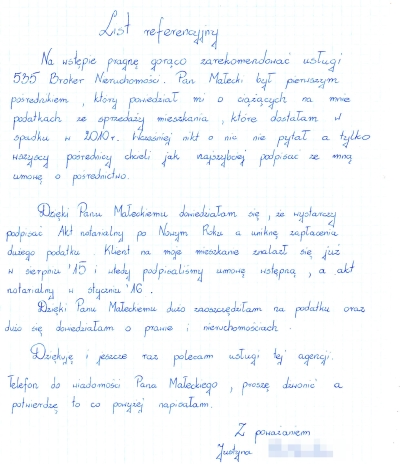 List referencyjny
Na wstępie pragnę gorąco zarekomendować usługi
535 Broker Nieruchomości. Pan Małecki był pierwszym
pośrednikiem, który powiedział mi o ciążących na mnie
podatkach ze sprzedaży mieszkania, które dostałam w
spadku w 2010 r. Wcześniej nikt o nic nie pytał a tylko
wszyscy pośrednicy chcieli jak najszybciej podpisać ze mną
umowę o pośrednictwo.
Dzięki Panu Małeckiemu dowiedziałam się, że wystarczy
podpisać Akt notarialny po Nowym Roku a uniknę zapłacenia
dużego podatku. Klient na moje mieszkanie znalazł się już
w sierpniu '15 i wtedy podpisaliśmy umowę wstępną, a akt
notarialny w styczniu '16.
Dzięki Panu Małeckiemu dużo zaoszczędziłam na podatku oraz
dużo się dowiedziałam o prawie i nieruchomościach.
Dziękuję i jeszcze raz polecam usługi tej agencji.
Telefon do wiadomości Pana Małeckiego, proszę dzwonić a
potwierdzę to co powyżej napisałam.
Z poważaniem
Justyna